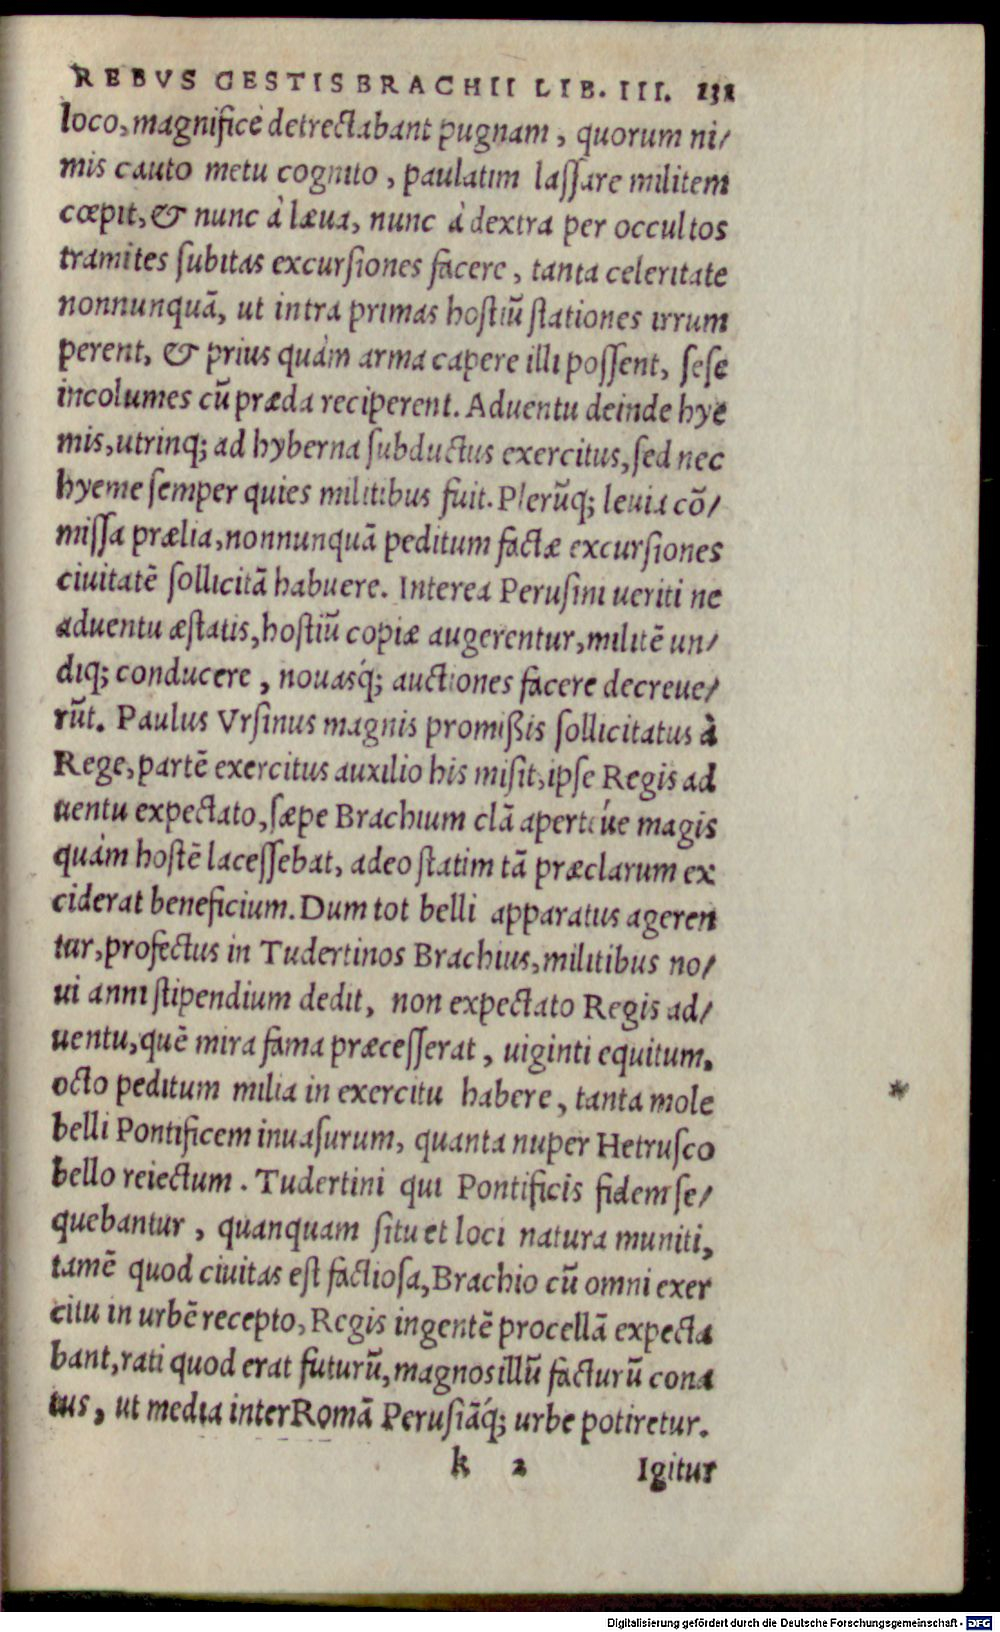 REBVS GESTIS BRACHII LIB. III. 131
loco, magnificè detrectabant pugnam, quorum ni/
mis cauto metu cognito, paulatim laſſare militem
cœpit, & nunc à læua, nunc à dextra per occultos
tramites ſubitas excurſiones facere, tanta celeritate
nonnunquã, ut intra primas hoſtiũ ſtationes irrum
perent, & prius quàm arma capere illi poſſent, ſeſe
incolumes cũ præda reciperent. Aduentu deinde hye
mis, utrinq; ad hyberna ſubductus exercitus, ſed nec
hyeme ſemper quies militibus fuit. Plerũq; leuia cõ/
miſſa prælia, nonnunquã peditum factæ excurſiones
ciuitatẽ ſollicitã habuere. Interea Peruſini ueriti ne
aduentu æſtatis, hoſtiũ copiæ augerentur, militẽ un/
diq; conducere, nouasq́; auctiones facere decreue/
rũt. Paulus Vrſinus magnis promiſsis ſollicitatus à
Rege, partẽ exercitus auxilio his miſit, ipſe Regis ad
uentu expectato, ſæpe Brachium clã aperteúe magis
quàm hoſtẽ laceſſebat, adeo ſtatim tã præclarum ex
ciderat beneficium. Dum tot belli apparatus ageren
tur, profectus in Tudertinos Brachius, militibus no/
ui anni ſtipendium dedit, non expectato Regis ad/
uentu, quẽ mira fama præceſſerat, uiginti equitum,
octo peditum milia in exercitu habere, tanta mole
belli Pontificem inuaſurum, quanta nuper Hetruſco
bello reiectum. Tudertini qui Pontificis fidem ſe/
quebantur, quanquam ſitu et loci natura muniti,
tamẽ quod ciuitas eſt factioſa, Brachio cũ omni exer
citu in urbẽ recepto, Regis ingentẽ procellã expecta
bant, rati quod erat futurũ, magnos illũ facturũ cona
tus, ut media inter Romã Peruſiãq́; urbe potiretur.
k 2 Igitur
Digitalisierung gefördert durch die Deutsche Forschungsgemeinschaft - DFG